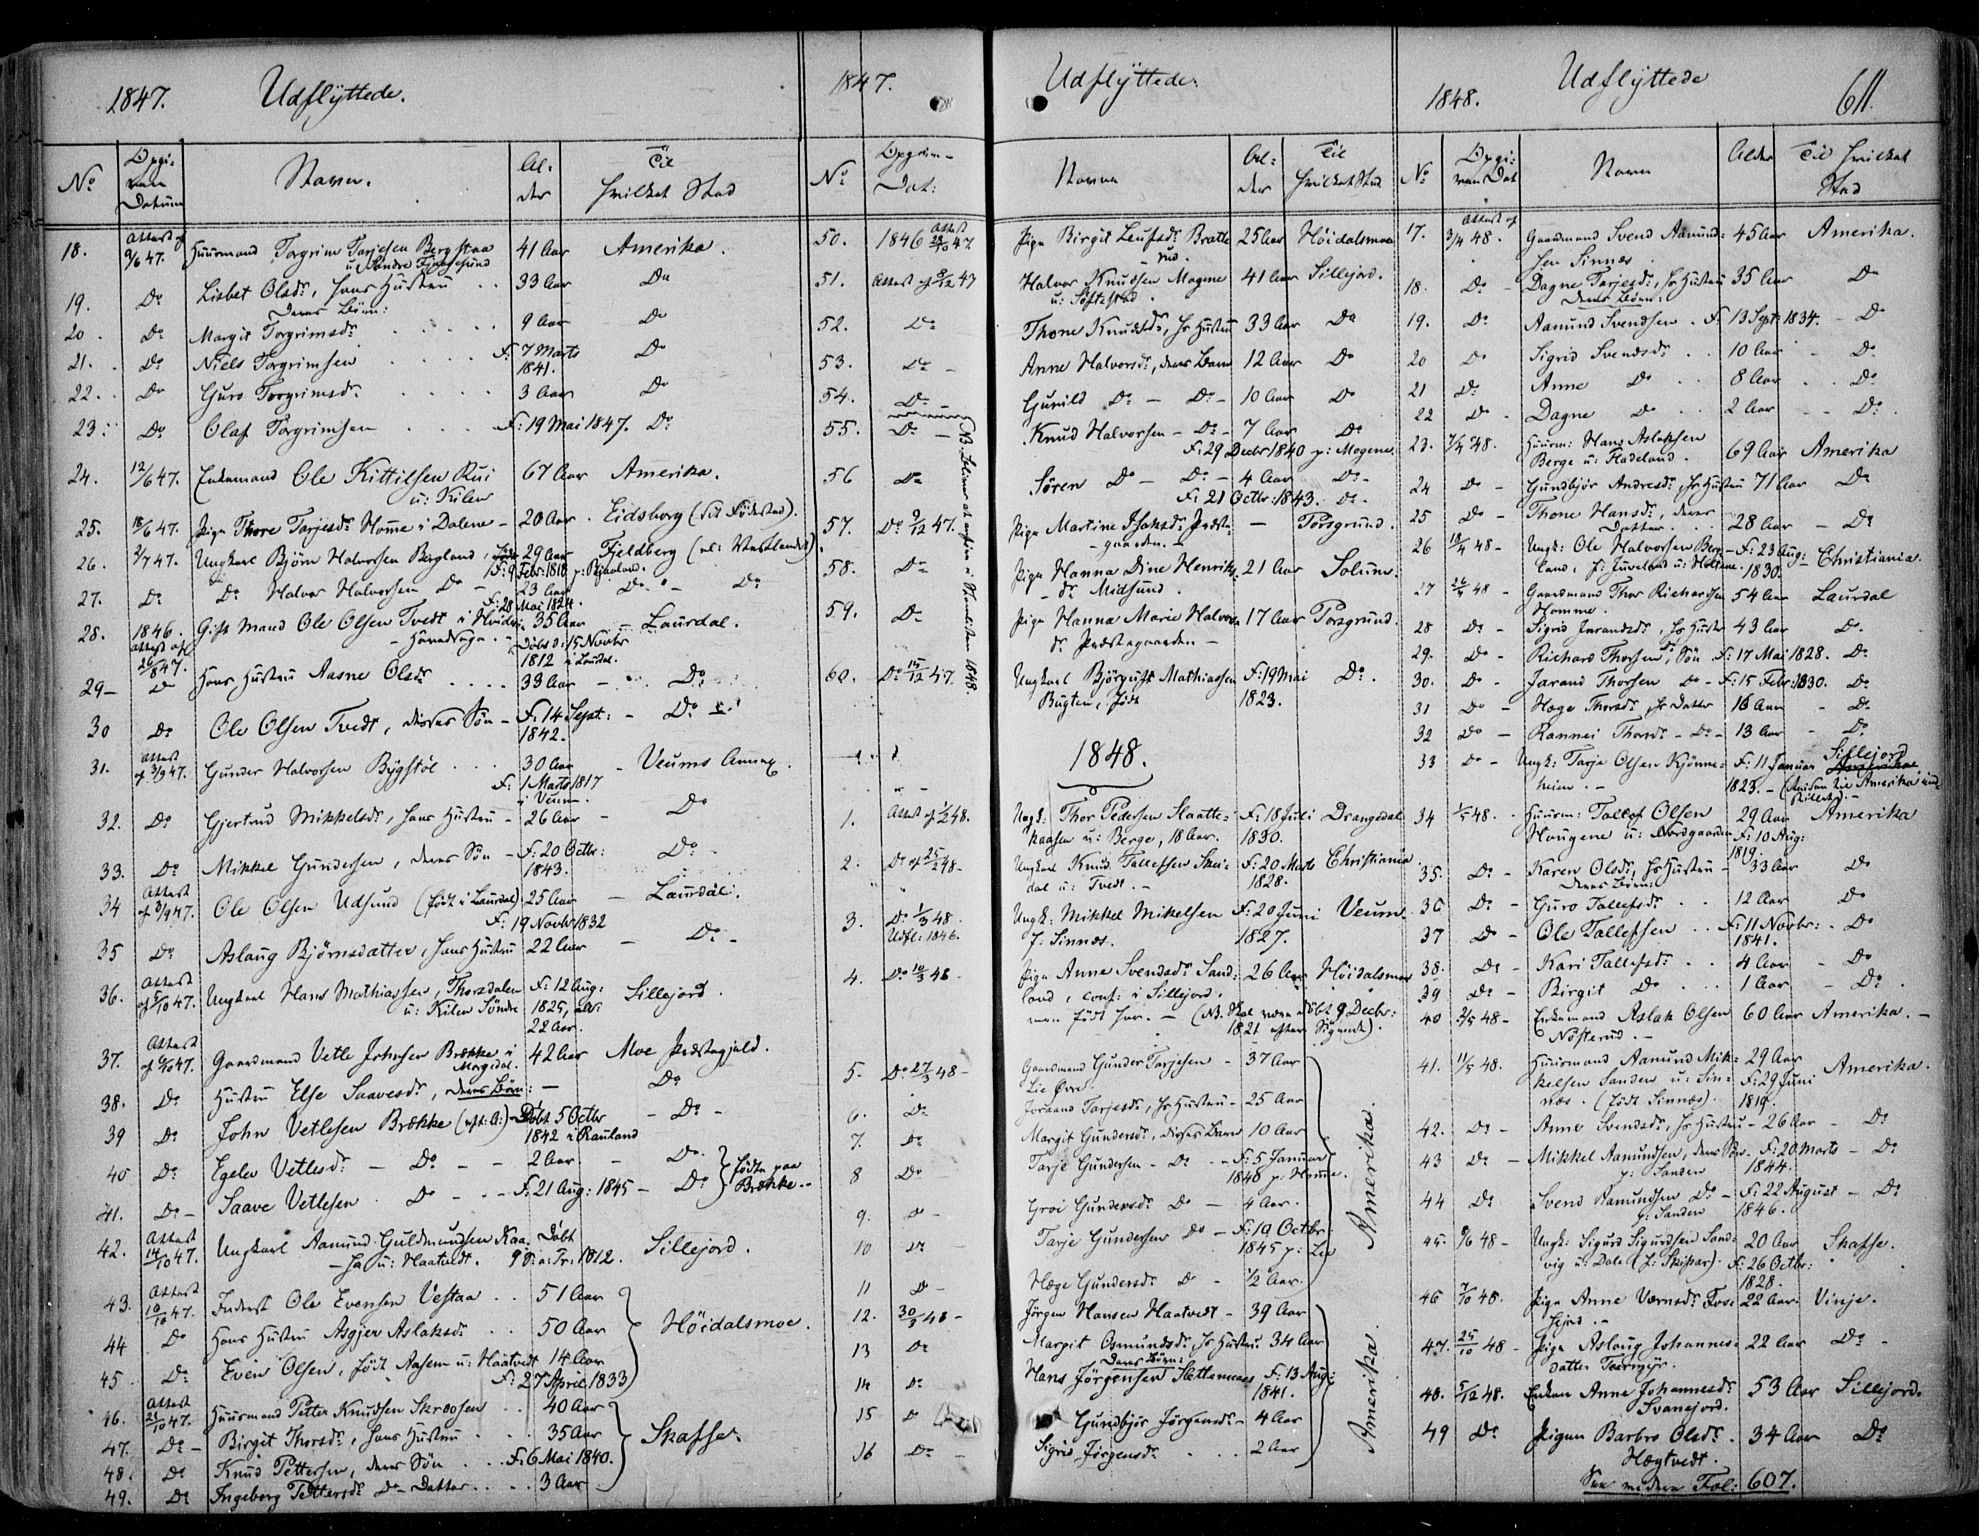 1847. Udflyttede.
No Opgi-ven Datum Navn. Al-der Til hvilket Sted
18. Attest af 9/6 47. Huusmand Torgrim Tarjesen Bergstaa 41 Aar Amerika.
u: Søndre
19. Do Lisbet Olsdr, hans Hustru . . 33 Aar Do
deres Børn:
20. Do Margit Torgrimsdr . . . 9 Aar Do
21. Do Niels Torgrimsen . . . F: 7 Marts 1841. Do
22. Do Guro Torgrimsdr . . . 3 Aar Do
23. Do Olaf Torgrimsen . . . F: 19 Mai 1847. Do
24. 12/6 47. Enkemand Ole Kittilsen Rui 67 Aar Amerika.
u: Kilen
25. 18/6 47. Pige Thore Tarjesdr Homme i Dalene - 20 Aar . Eidsborg (sit Fødested).
26. 2/7 47. Ungkarl Bjørn Halvorsen Bergland, 29 Aar Fjeldberg (al: Vestlandet).
F: 9 Febr: 1818
27. Do Do Halvor Halvorsen Do - 23 Aar Do - Do
F: 28 Mai 1824.
28. 1846. Gift Mand Ole Olsen Tvedt i 35 Aar - Laurdal.
Attest af 26/8 47. Døbt d: 15 Novbr 1812 i Laurdal.
29 - Do Hans Hustru Aasne Olsdr . . . 33 Aar - Do
30 Do Ole Olsen Tvedt, deres Søn - F: 14 Sept: 1842. - Do
31. Attest af 3/9 47. Gunder Halvorsen Bygstøl . . . 30 Aar - Veums Annex.
F: 1 Marts 1817 i Veum.
32. Do Gjertrud Mikkelsdr, hans Hustru - 26 Aar - Do
33. Do Mikkel Gundersen, deres Søn - F: 20 Octbr: 1843. Do -
34 Attest af 3/9 47. Ole Olsen Udsund (født i Laurdal) 25 Aar - Laurdal.
F: 19 Novbr 1832
35 Do Aslaug Bjørnsdatter, hans Hustru 22 Aar - Do -
36. Attest af 5/10 47. Ungkarl Hans Mathiassen, Thorsdalen F: 12 Aug: Sillejord.
u: Kilen Søndre 1825, al: 22 Aar.
37. Attest af 6/10 47. Gaardmand Vetle Johnsen Brække i 42 Aar Moe Præstegjeld.
Morgedal.
38. Do Hustru Else Saavesdr, deres Børn: - Do
39 Do John Vetlesen Brække - Døbt 5 Octbr 1842 i Rauland - Do -
40 Do Egelev Vetlesdr - Do - - 2 Aar - Do } fødte paa
41. Do - Saave Vetlesen . Do - - F: 21 Aug: 1845 - Do } Brække -
42. Attest 14/10 47. Ungkarl Aamund Guldmundsen Døbt Sillejord.
u: Haatvedt. 9 S: a: Tr: 1812.
43. Attest 16/10 47. Inderst Ole Evensen Vestaa . . 51 Aar
44 Do Hans Hustru Asgjer Aslaksdr . . 50 Aar } Høidalsmoe.
45 Do Even Olsen, født Aasem u: Haatvedt 14 Aar
F: 27 April 1833
46. Attest 21/10 47. Huusmand Petter Knudsen Skreosen . . 40 Aar
47. Do - Birgit Thorsdr, hans Hustru . . 35 Aar } Skafse.
48. Do Knud Pettersen, deres Søn . . F: 6 Mai 1840.
49. Do Ingeborg Pettersdr Do - Datter . . . 3 Aar
1847. Udflyttede.
No Dat: Navn Al-der Til hvilket Sted
50. 1846 Attest 24/10 47. Pige Birgit Leufsdr Bratte- 25 Aar Høidalsmoe
rud.
51. Attest af 8/12 47 Halvor Knudsen Mogene 41 Aar Sillejord.
u: Søftestad.
52. Do Thone Knudsdr, hs Hustru 33 Aar Do
53. Do - Anne Halvorsdr, deres Barn 12 Aar Do
54. Do - Gunild Do - Do - 10 Aar Do
55. Do - Knud Halvorsen - Do - 7 Aar Do
F: 29 Decbr 1840 p: Mogene
56 Do Søren Do - Do - 4 Aar Do -
F: 21 Octbr: 1843. Do -
57. Do 9/12 47. Pige Martine Isaksdr Præste- - Porsgrund.
gaarden. -
58. Do Pige Hanna Dine Henriks- 21 Aar Solum.
dr Midsund.
59. Do Pige Hanna Marie Halvors- 17 Aar Porsgrund.
dr Præstegaarden -
60. Do 15/12 47. Ungkarl Bjørgulf Mathiassen F: 19 Mai Do -
Bugten, født 1823.
1848.
1. Attest af 1/2 48. Ungk: Thor Pedersen Slaatte- F: 18 Juli Drangedal
kaasen u: Berge, 18 Aar. 1830.
2. Do af 25/2 48 - Ungkarl Knud Tallefsen Skei- F: 20 Marts Christiania.
dal u: Tvedt. - 1828.
3. Do 1/3 48. Ungk: Mikkel Mikelsen F: 20 Juni Veum.
Udfl: 1846. f: Sinnæs. 1827.
4. Do 18/3 48 - Pige Anne Svendsdr Sand- 26 Aar Høidalsmoe
land, conf: i Sillejord.
men født her. - (NB. Skal være døbt 9 Decbr: 1821 efter Sigende).
5. Do 27/3 48 - Gaardmand Gunder Tarjesen - 37 Aar
Lie Øvre.
6. Do Joraand Tarjesdr, hs Hustru - 25 Aar
7. Do Margit Gundersdr, deres Barn 10 Aar
8 Do Tarje Gundersen - Do - F: 5 Januar 1840 p: Homme.
9. Do - Groe Gundersdr Do - 4 Aar.
10 Do Tarje Gundersen Do - F: 19 Octbr: 1845 p: Lie
11 Do - Hæge Gundersdr Do - 1/2 Aar.
Amerika.
12. 30/3 48 - Jørgen Hansen Haatvedt - 39 Aar
13 Do Margit Osmundsdr, hs Hustru 34 Aar
deres Børn:
14 Do Hans Jørgensen Slettemeaas F: 13 Aug: 1841.
15 Do Gundbjør Jørgensdr - 4 Aar
16 Do - Sigrid Jørgensdr . . . 2 Aar
Amerika.
1848. Udflyttede 611.
No Opgi-ven Dat Navn Alder Til hvilket Sted
17. Attest af 3/4 48. Gaardmand Svend Aamund- 45 Aar Amerika.
sen Sinnes.
18. Do - Dagne Tarjesdr, hs Hustru 35 Aar Do
deres Børn:
19. Do Aamund Svendsen . F: 13 Sept: 1834. - Do
20 Do Sigrid Svendsdr . . 10 Aar - Do
21 Do Anne Do . . 8 Aar . . Do
22 Do - Dagne Do . . 2 Aar - - Do
23. 7/4 48. Huusm: Hans Aslaksen 69 Aar Amerika
Berge u: Fladeland.
24 Do - Gundbjør Andresdr, hs Hustru 71 Aar Do
25 Do - Thone Hansdr, deres Datter . . 28 Aar - Do
26 18/4 48 - Ungk: Ole Halvorsen Berg- F: 23 Aug: Christiania.
land, f: Juveland 1830.
27 26/4 48 - Gaardmand Thor Richardsen 54 Aar Laurdal
Homme.
28 Do - Sigrid Jarandsdr, hs Hustru 43 Aar Do -
29. Do - Richard Thorsen, Søn F: 17 Mai 1828. Do
30. Do - Jarand Thorsen Do - F: 15 Febr: 1830. Do
31 Do - Hæge Thorsdr, hs Datter 16 Aar - Do
32 Do - Rannei Thorsdr - Do - 13 Aar - Do
33 Do - Ungk: Tarje Olsen Kjønne- F: 11 Januar Sillejord
heim. - 1823. -
34 1/5 48. Huusm: Tallef Olsen 29 Aar Amerika
Haugene u: Nordgaarden F: 10 Aug: 1819.
35. Do - Karen Olsdr, hs Hustru - 33 Aar Do
deres Børn:
36 Do - Guro Tallefsdr . . 12 Aar Do
37 Do - Ole Tallefsen . . F: 11 Novbr: 1841. - Do
38. Do - Kari Tallefsdr . . 4 Aar - Do
39 Do - Birgit Do . . . 1 Aar - Do
40 2/5 48 - Enkemand Aslak Olsen 60 Aar Amerika. -
Nøsterud. -
41. 11/5 48. Huusmand Aamund Mik- 29 Aar Amerika.
kelsen Sanden u: Sin- F: 29 Juni
næs. (født Sinnæs). 1819.
42. Do - Anne Svendsdr, hs Hustru - 26 Aar - Do
43 Do - Mikkel Aamundsen, deres Søn F: 20 Marts - Do
p: Sanden 1844.
44 Do Svend Aamundsen Do - F: 22 August - Do
p: Sanden 1846.
45. 9/6 48 - Ungk: Sigurd Sigurdsen Sand- 20 Aar Skafse.
vig u: Dale F: 26 Octbr: 1828.
46 7/10 48. Pige Anne Værnsdr 22 Aar. Vinje.
47. 25/10 48 - Pige Aslaug Johannes- 22 Aar Do -
datter
48. 5/12 48. Enken Anne Johannesdr 53 Aar Sillejord.
Svanejord.
49 Do Pigen Barbro Olsdr . 34 Aar Do
Hægtvedt.
See videre Fol: 607.